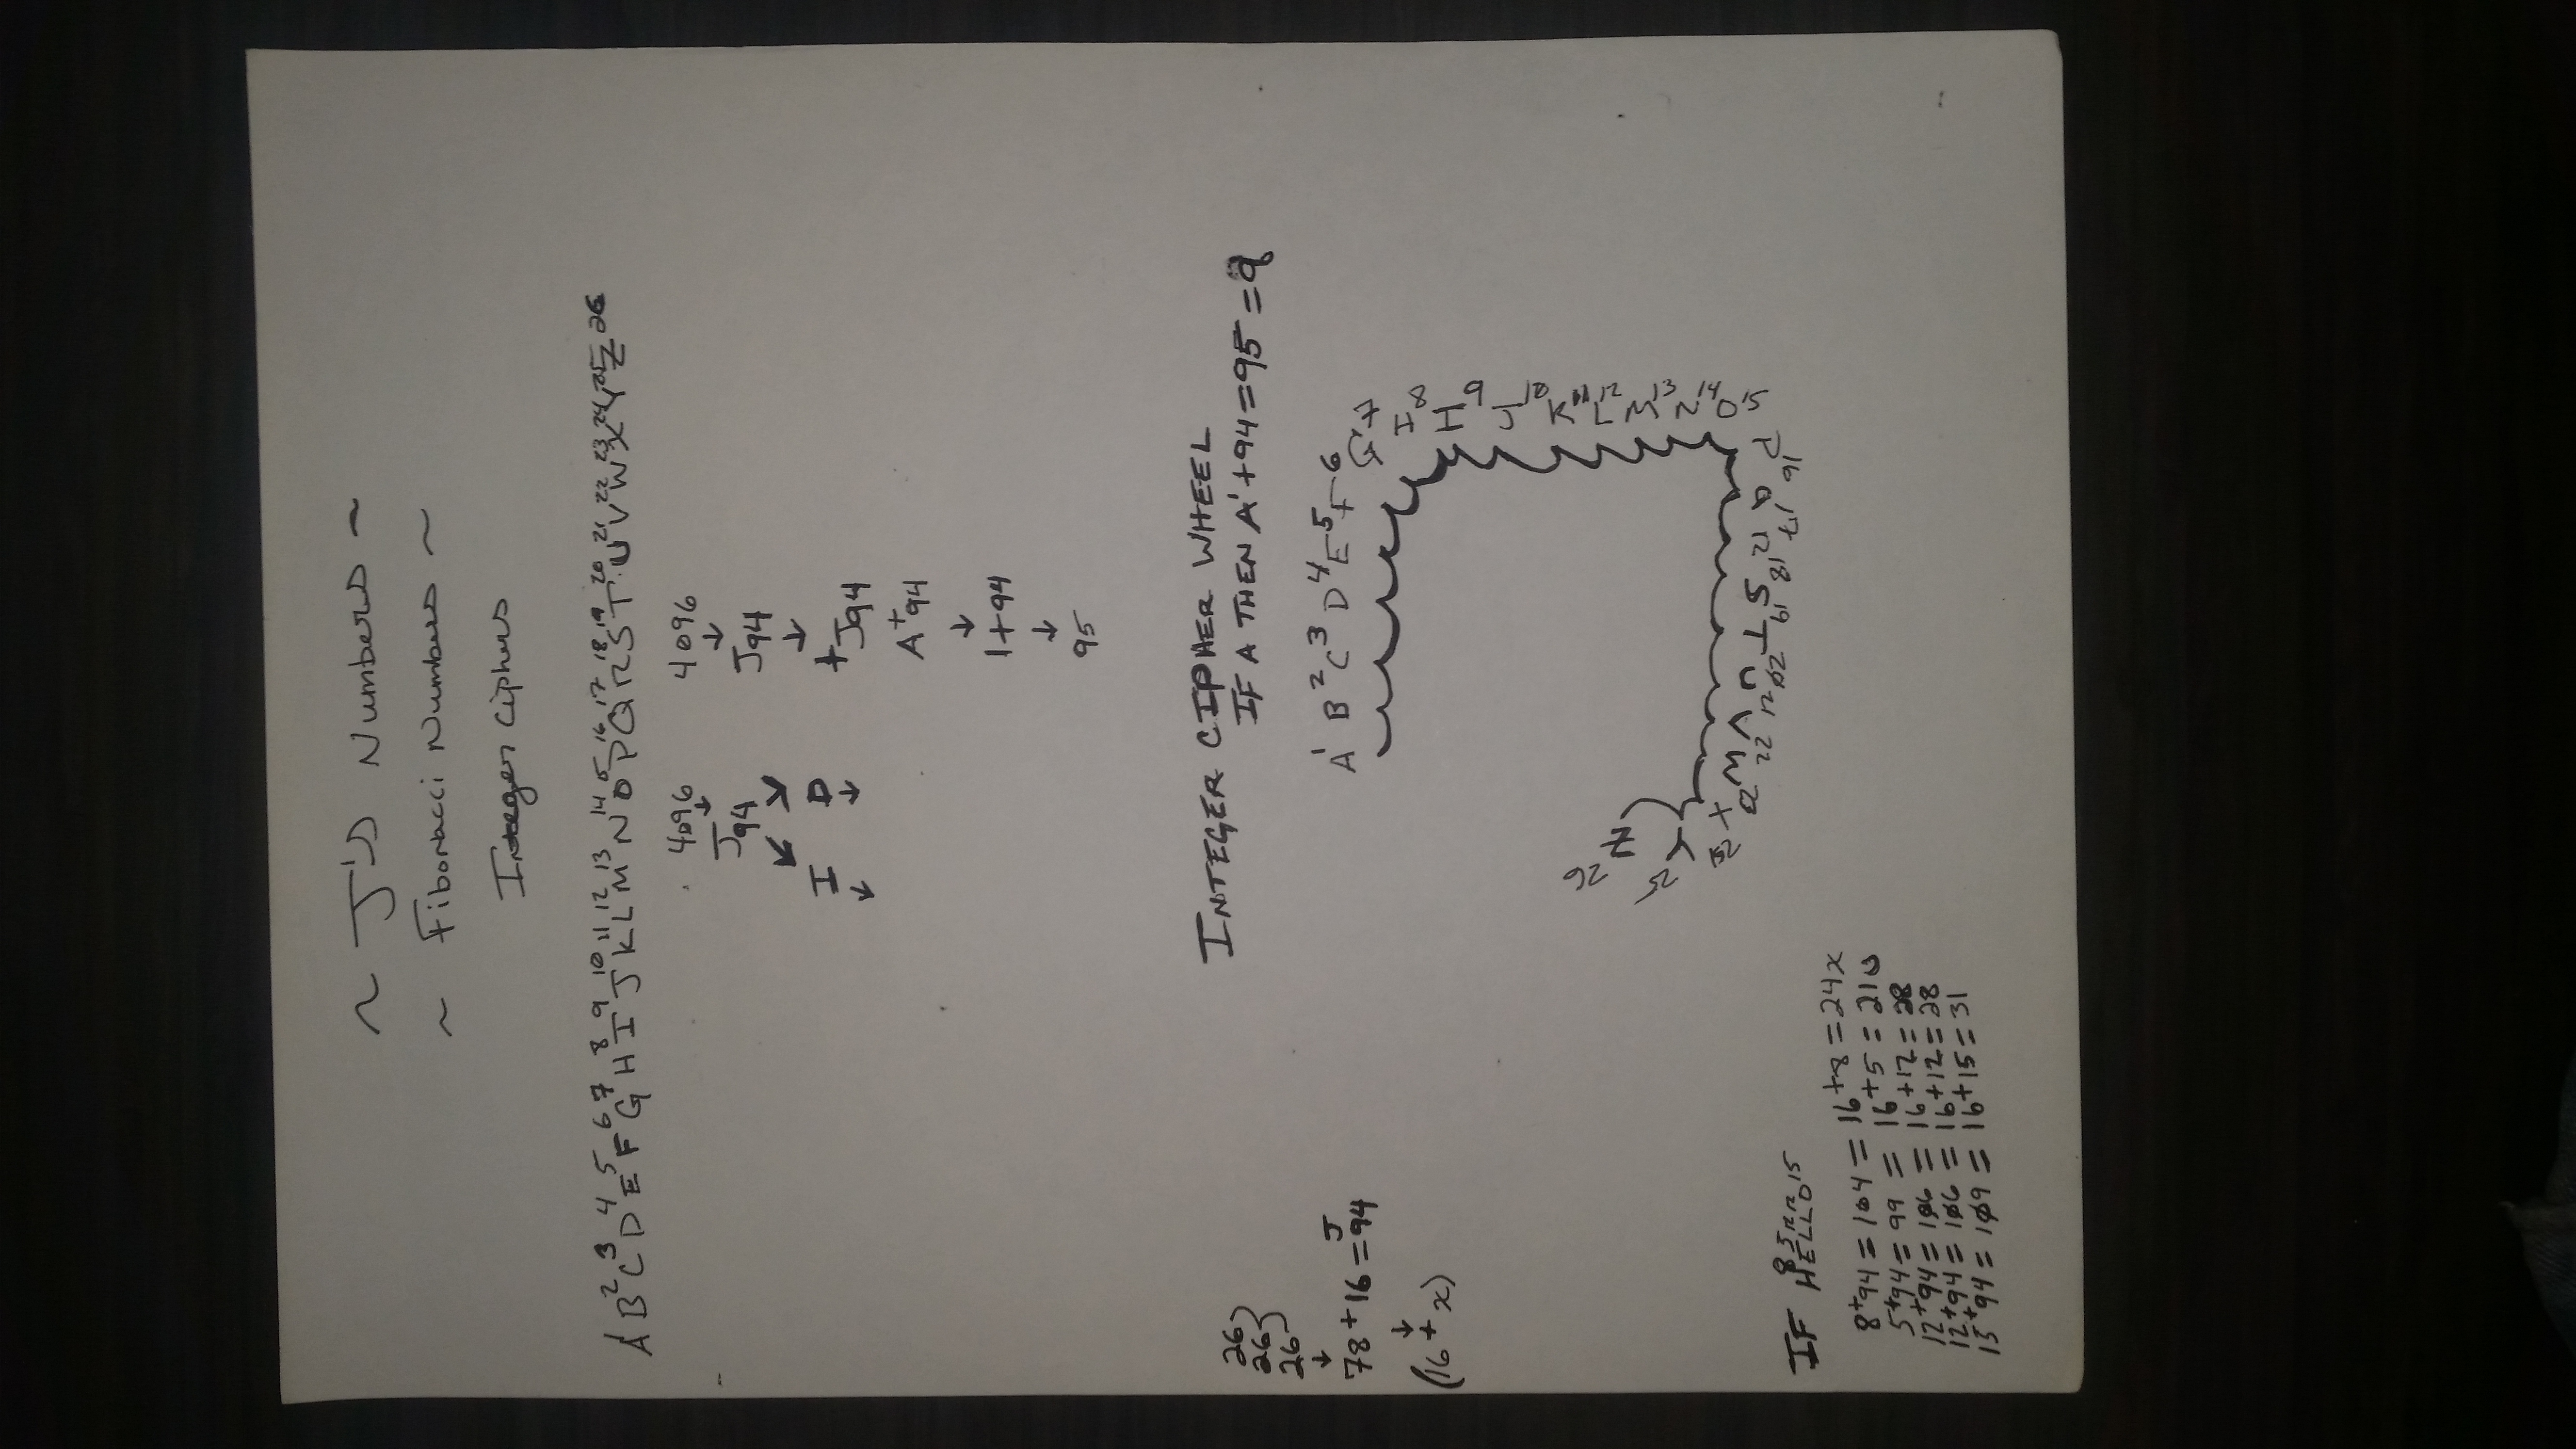 ~ J's Numbers ~
~ Fibonacci Numbers ~
Integer Ciphers
A1 B2 C3 D4 E5 F6 G7 H8 I9 J10 K11 L12 M13 N14 O15 P16 Q17 R18 S19 T20 U21 V22 W23 X24 Y25 Z26
4096 4096
↓ ↓
J94 J94
↙ ↘ ↓
I D +J94
↙ ↓
A+94
↓
1+94
↓
95
INTEGER CIPHER WHEEL
IF A THEN A1+94=95=q
26
26
26
↓
J
78+16=94
↓
(16+x)
A1 B2 C3 D4 E5 F6 G7 H8 I9 J10 K11 L12 M13 N14 O15 P16 Q17 18 S19 T20 U21 V22 W X Y25 Z26
IF HELLO15
8+94=104=16+8=24x
5+94=99=16+5=21u
12+94=106=16+12=28
12+94=106=16+12=28
15+94=109=16+15=31